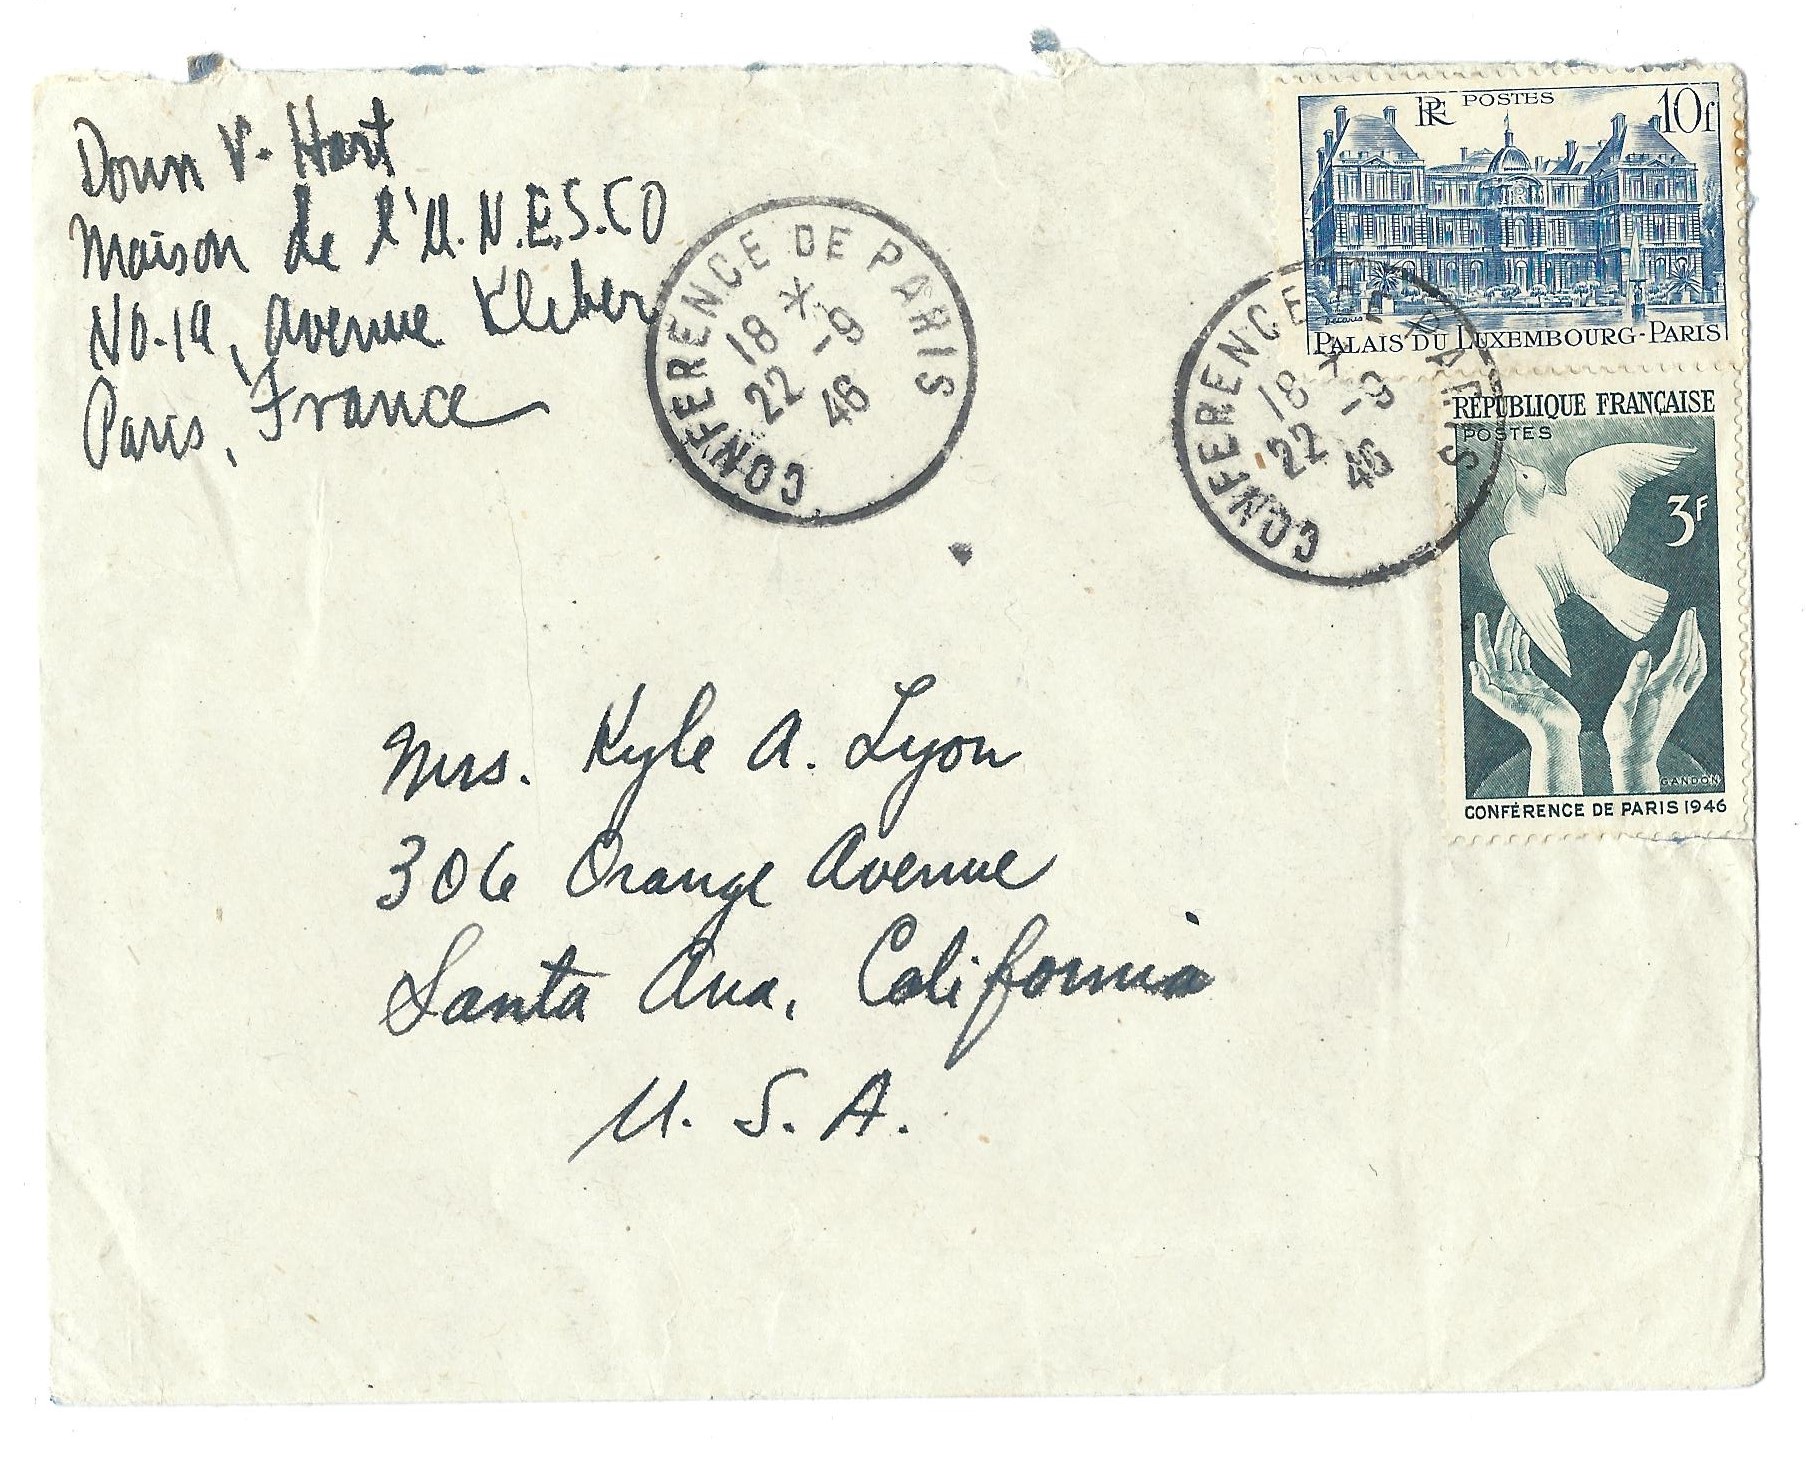 Donn V. Hart
Maison de l'U.N.E.S.CO
No. 19, Avenue Kleber
Paris, France
CONFERENCE DE PARIS
18 * -9
22 46
CONFERENCE DE PARIS
18 * -9
22 46
RF POSTES 10f
Decaris
PALAIS DU LUXEMBOURG-PARIS
RÉPUBLIQUE FRANÇAISE
POSTES
3F
GANDON
CONFÉRENCE DE PARIS 1946
Mrs. Kyle A. Lyon
306 Orange Avenue
Santa Ana, California
U. S. A.